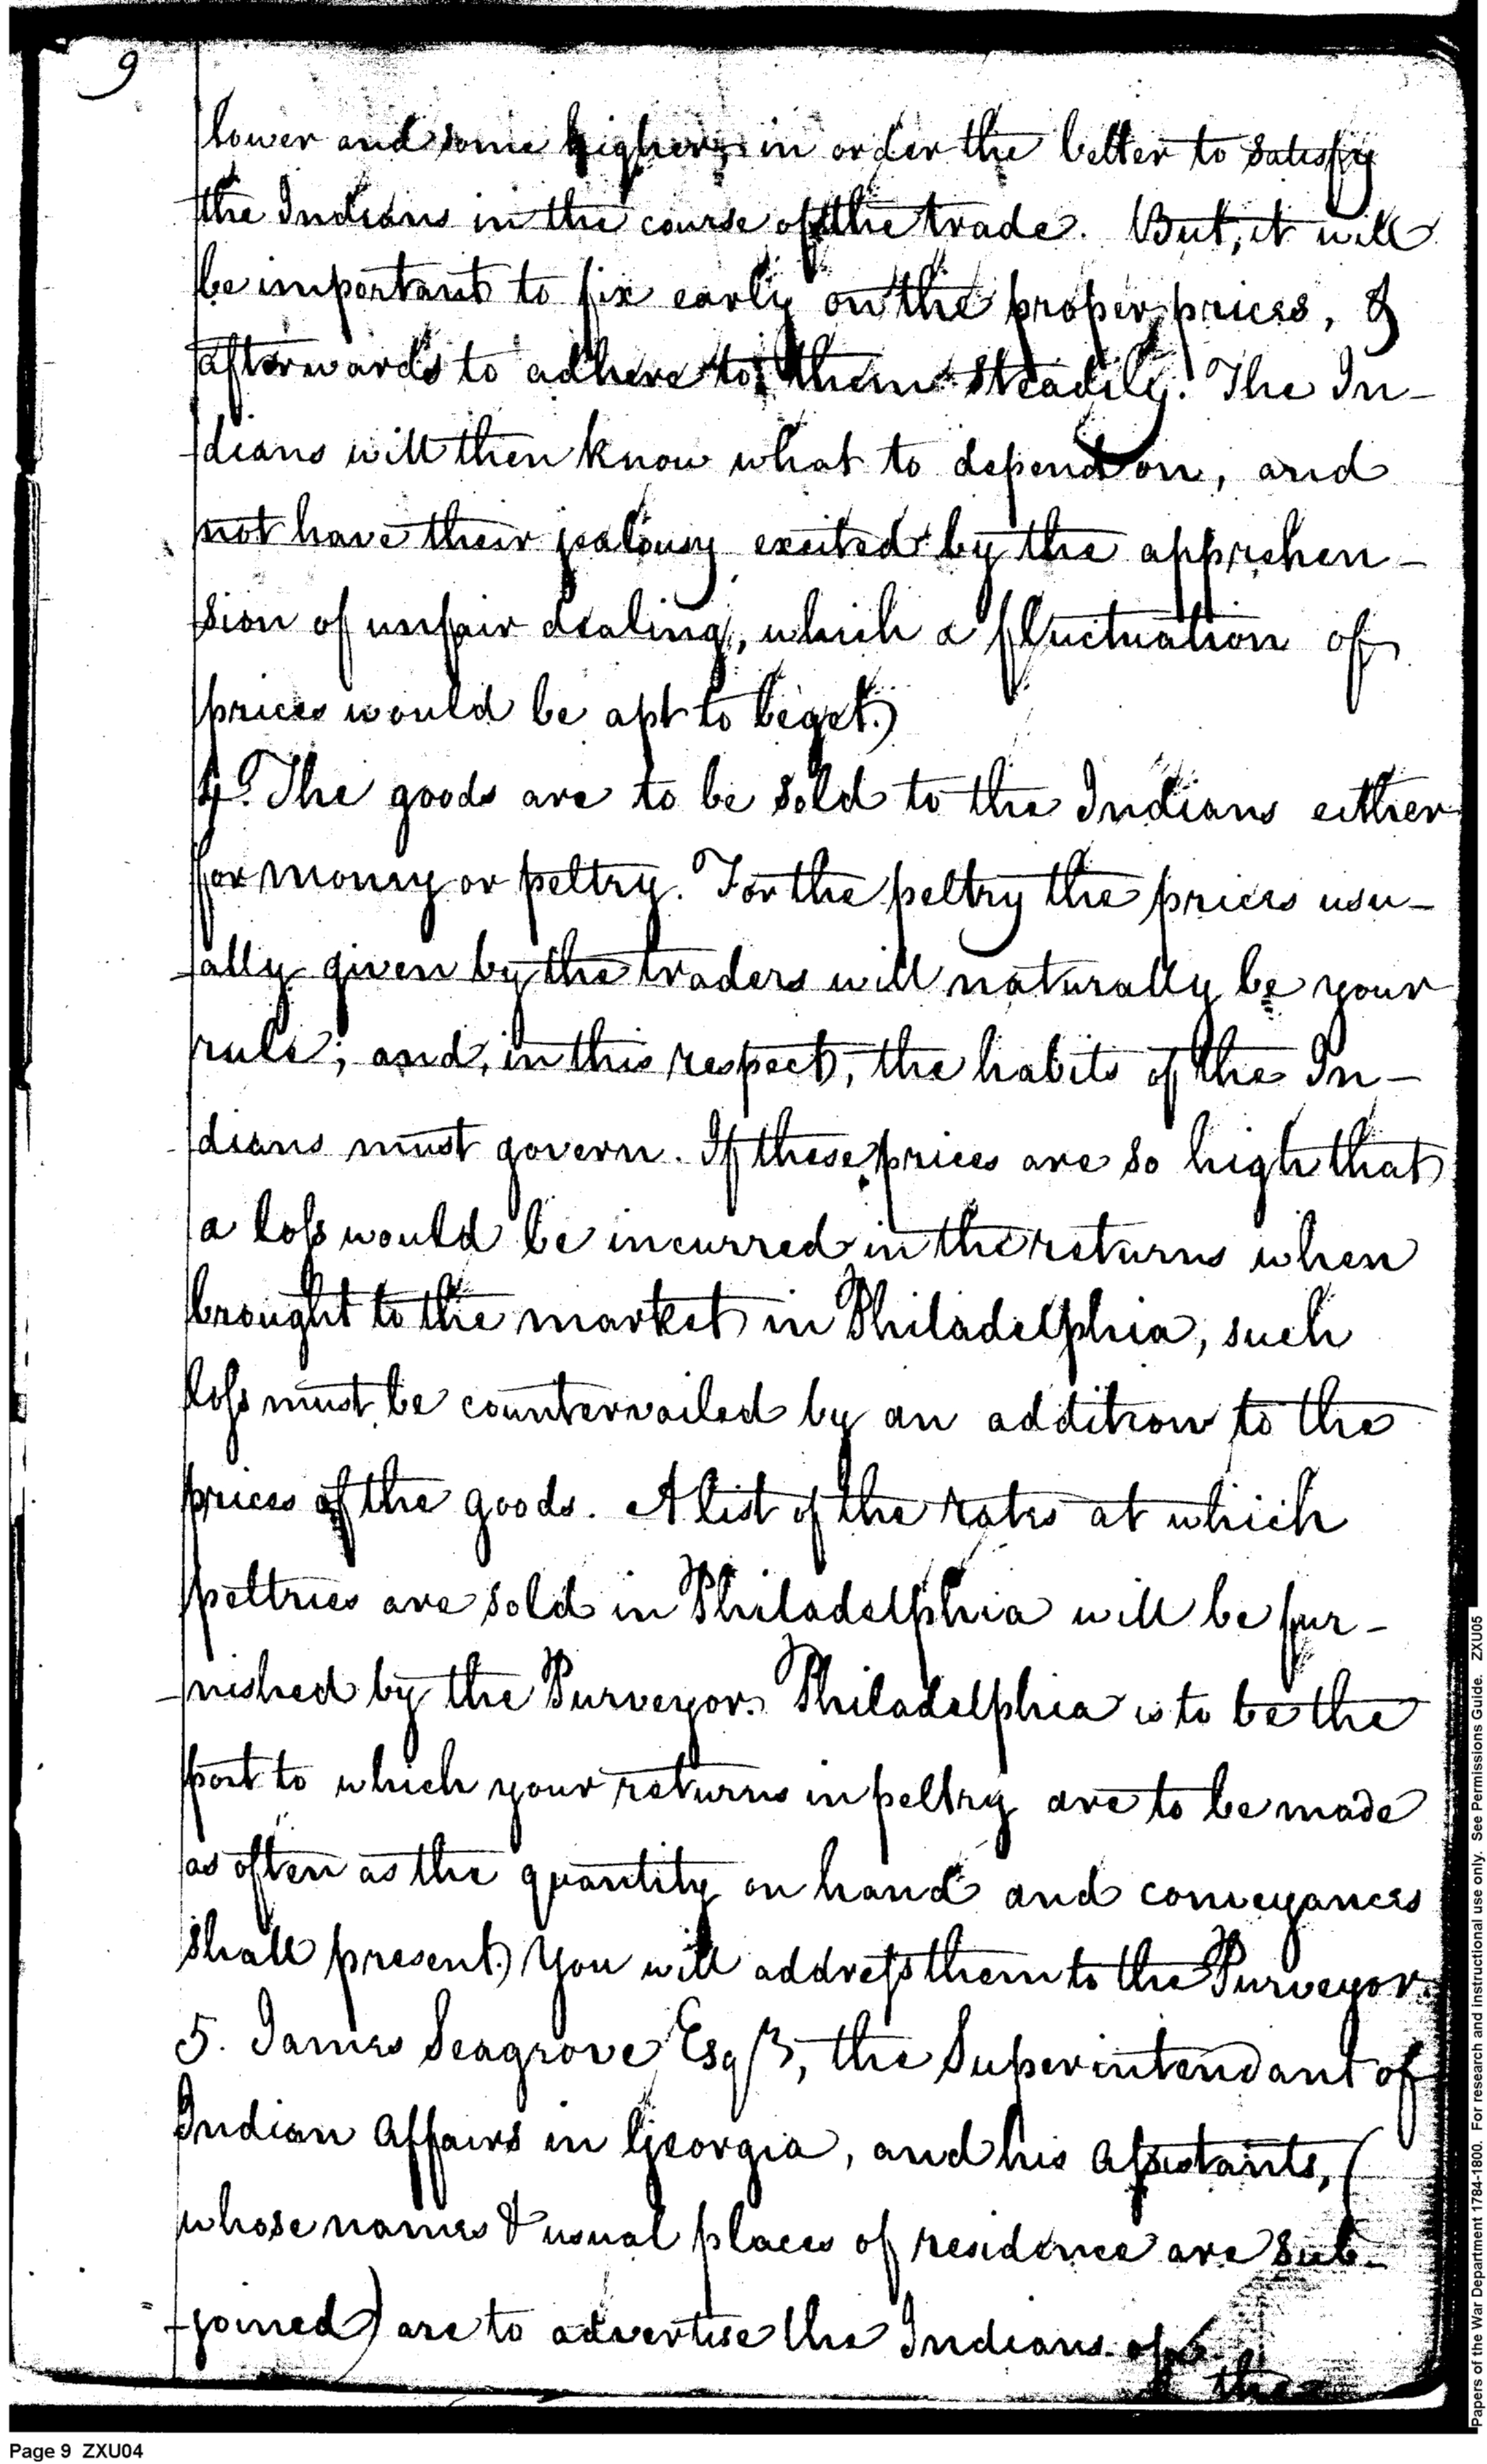 9
lower and some higher, in order the better to satisfy
the Indians in the course of the trade. But, it will
be important to fix early on the proper prices, &
afterwards to adhere to them steadily. The In-
dians will then know what to depend on, and
not have their jealousy excited by the apprehen-
sion of unfair dealing, which a fluctuation of
prices would be apt to beget.)
4. The goods are to be sold to the Indians either
for money or peltry. For the peltry the prices usu-
ally given by the traders will naturally be your
rule; and, in this respect, the habits of the In-
dians must govern. If these prices are so high that
a loss would be incurred in the returns when
brought to the market in Philadelphia, such
loss must be countervailed by an addition to the
prices of the goods. A list of the rates at which
peltries are sold in Philadelphia will be fur-
nished by the Purveyor. Philadelphia is to be the
port to which your returns in peltry are to be made
as often as the quantity on hand and conveyances
shall present.) You will address them to the Purveyor.
5. James Seagrove Esqr, the Superintendant of
Indian Affairs in Georgia, and his Assistants, (
whose names & usual places of residence are sub-
joined) are to advertise the Indians of
the
Page 9 ZXU04
Papers of the War Department 1784-1800. For research and instructional use only. See Permissions Guide. ZXU05